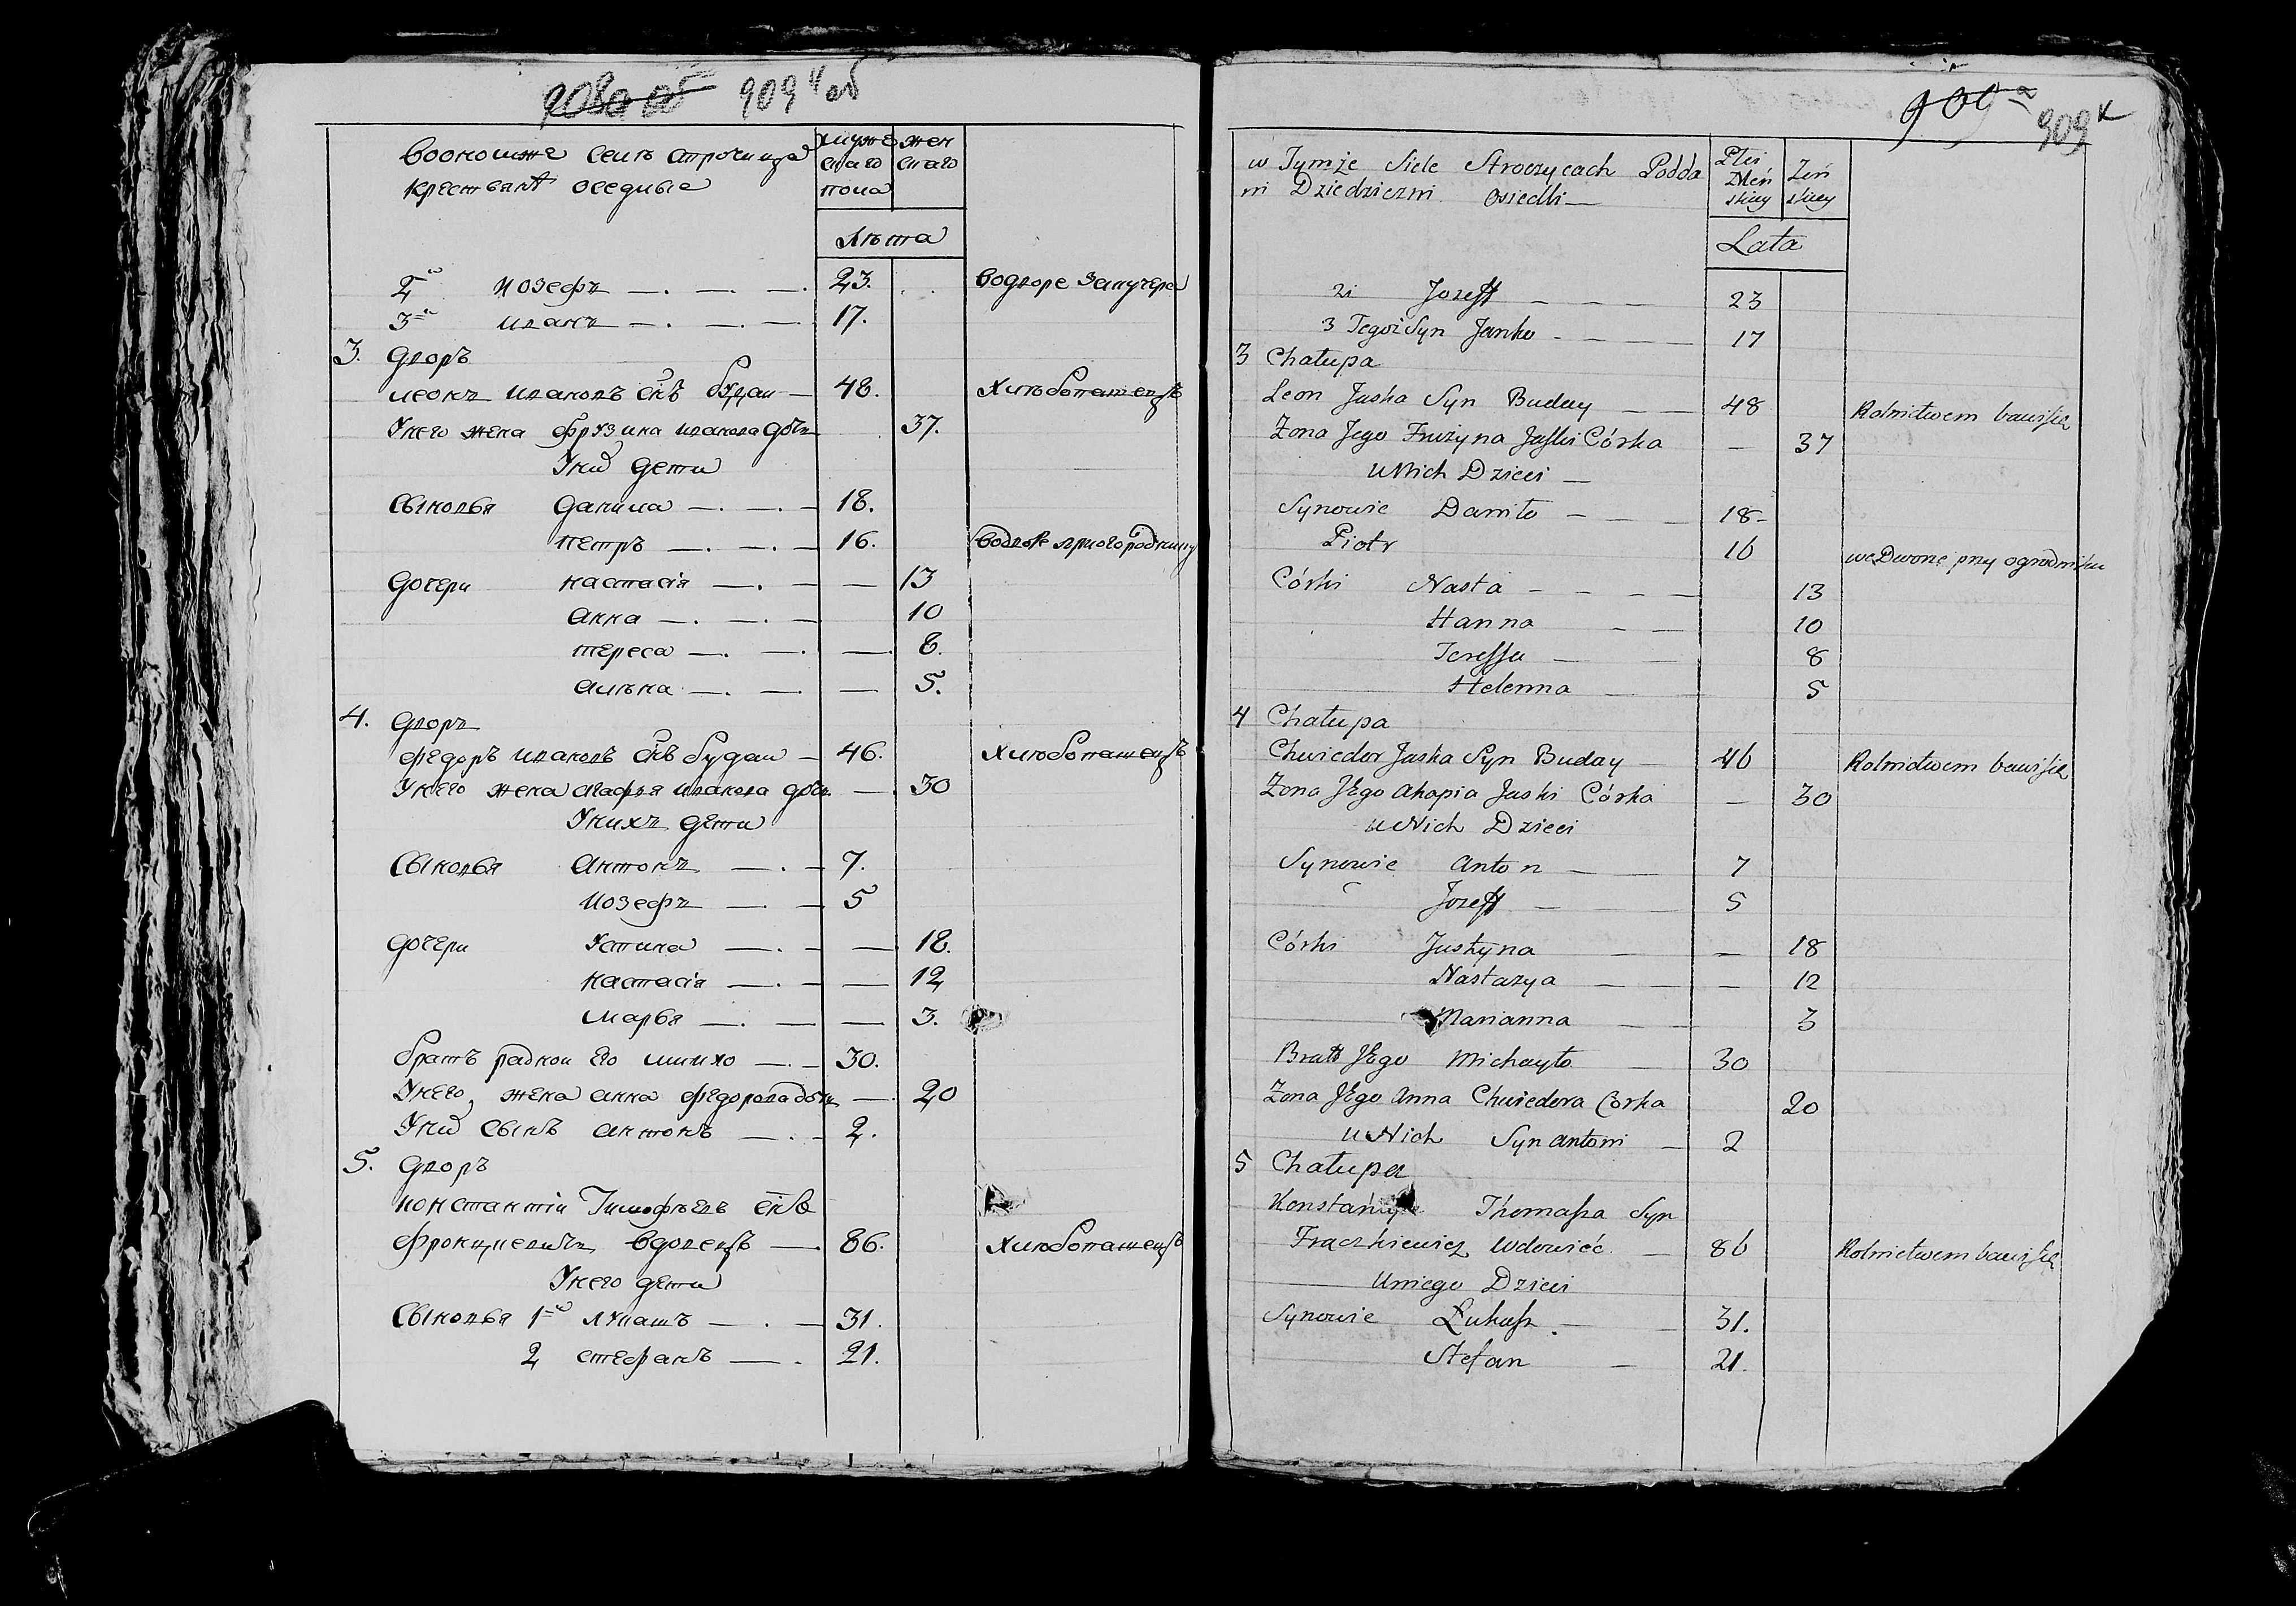 908а об 909 и об
Воономже селѣ строчицѣ
крестьянѣ оседлыя
мужескаго пола женскаго
Лѣта
2й Иозефъ 23. Водворе Закучера
3й Иванъ 17.
3. Дворъ
Леонъ Ивановъ снъ Будаи 48. Хлѣбопашецъ
Унего жена Фрузина Иванова дочь 37.
Уних дети
Сыновья Данила 18.
Петръ 16. Водворе приогороднику
Дочери Настасія 13
Анна 10
Тереса 8.
Алѣна 5.
4. Дворъ
Федоръ Ивановъ снъ Будаи 46. Хлѣбопашецъ
Унего жена Агафья Иванова дочь 30
Унихъ дети
Сыновья Антонъ 7.
Иозефъ 5
Дочери Устина 18.
Настасія 12
Марья 3.
Братъ раднои Его Михло 30.
Унего жена Анна Федорова дочь 20
Уних Сынъ Антонъ 2.
5. Дворъ
Константіи Тимофѣевъ снъ
Фронцкевичъ Вдовецъ 86. Хлѣбопашецъ
Унего дети
Сыновья 1й Лукашъ 31.
2 Стефанъ 21.
909a 909 к
w Tymże Siele Stroczycach Podda
ni Dziedziczni Osiedli
Płci Męń skiey Żeń skiey
Lata
2i Jozeff 23
3 Tegoż Syn Janko 17
3 Chałupa
Leon Jaska Syn Buday 48 Rolnictwem bawi się
Żona Jego Fruzyna Jaski Córka 37
u Nich Dzieci
Synowie Daniło 18
Piotr 16 we Dworze przy ogrodniku
Córki Nasta 13
Hanna 10
Teressa 8
Helenna 5
4 Chałupa
Chwiedor Jaska Syn Buday 46 Rolnictwem bawi się
Żona Jego Ahapia Jaski Córka 30
u Nich Dzieci
Synowie Anton 7
Jozeff 5
Córki Justyna 18
Nastazya 12
Marianna 3
Brat Jego Michayło 30
Żona Jego Anna Chwiedora Corka 20
u Nich Syn Antoni 2
5 Chałupa
Konstanty Thomasza Syn
Frączkiewicz Wdowiéc 86 Rolnictwem bawi się
Uniego Dzieci
Synowie Łukasz 31.
Stefan 21.